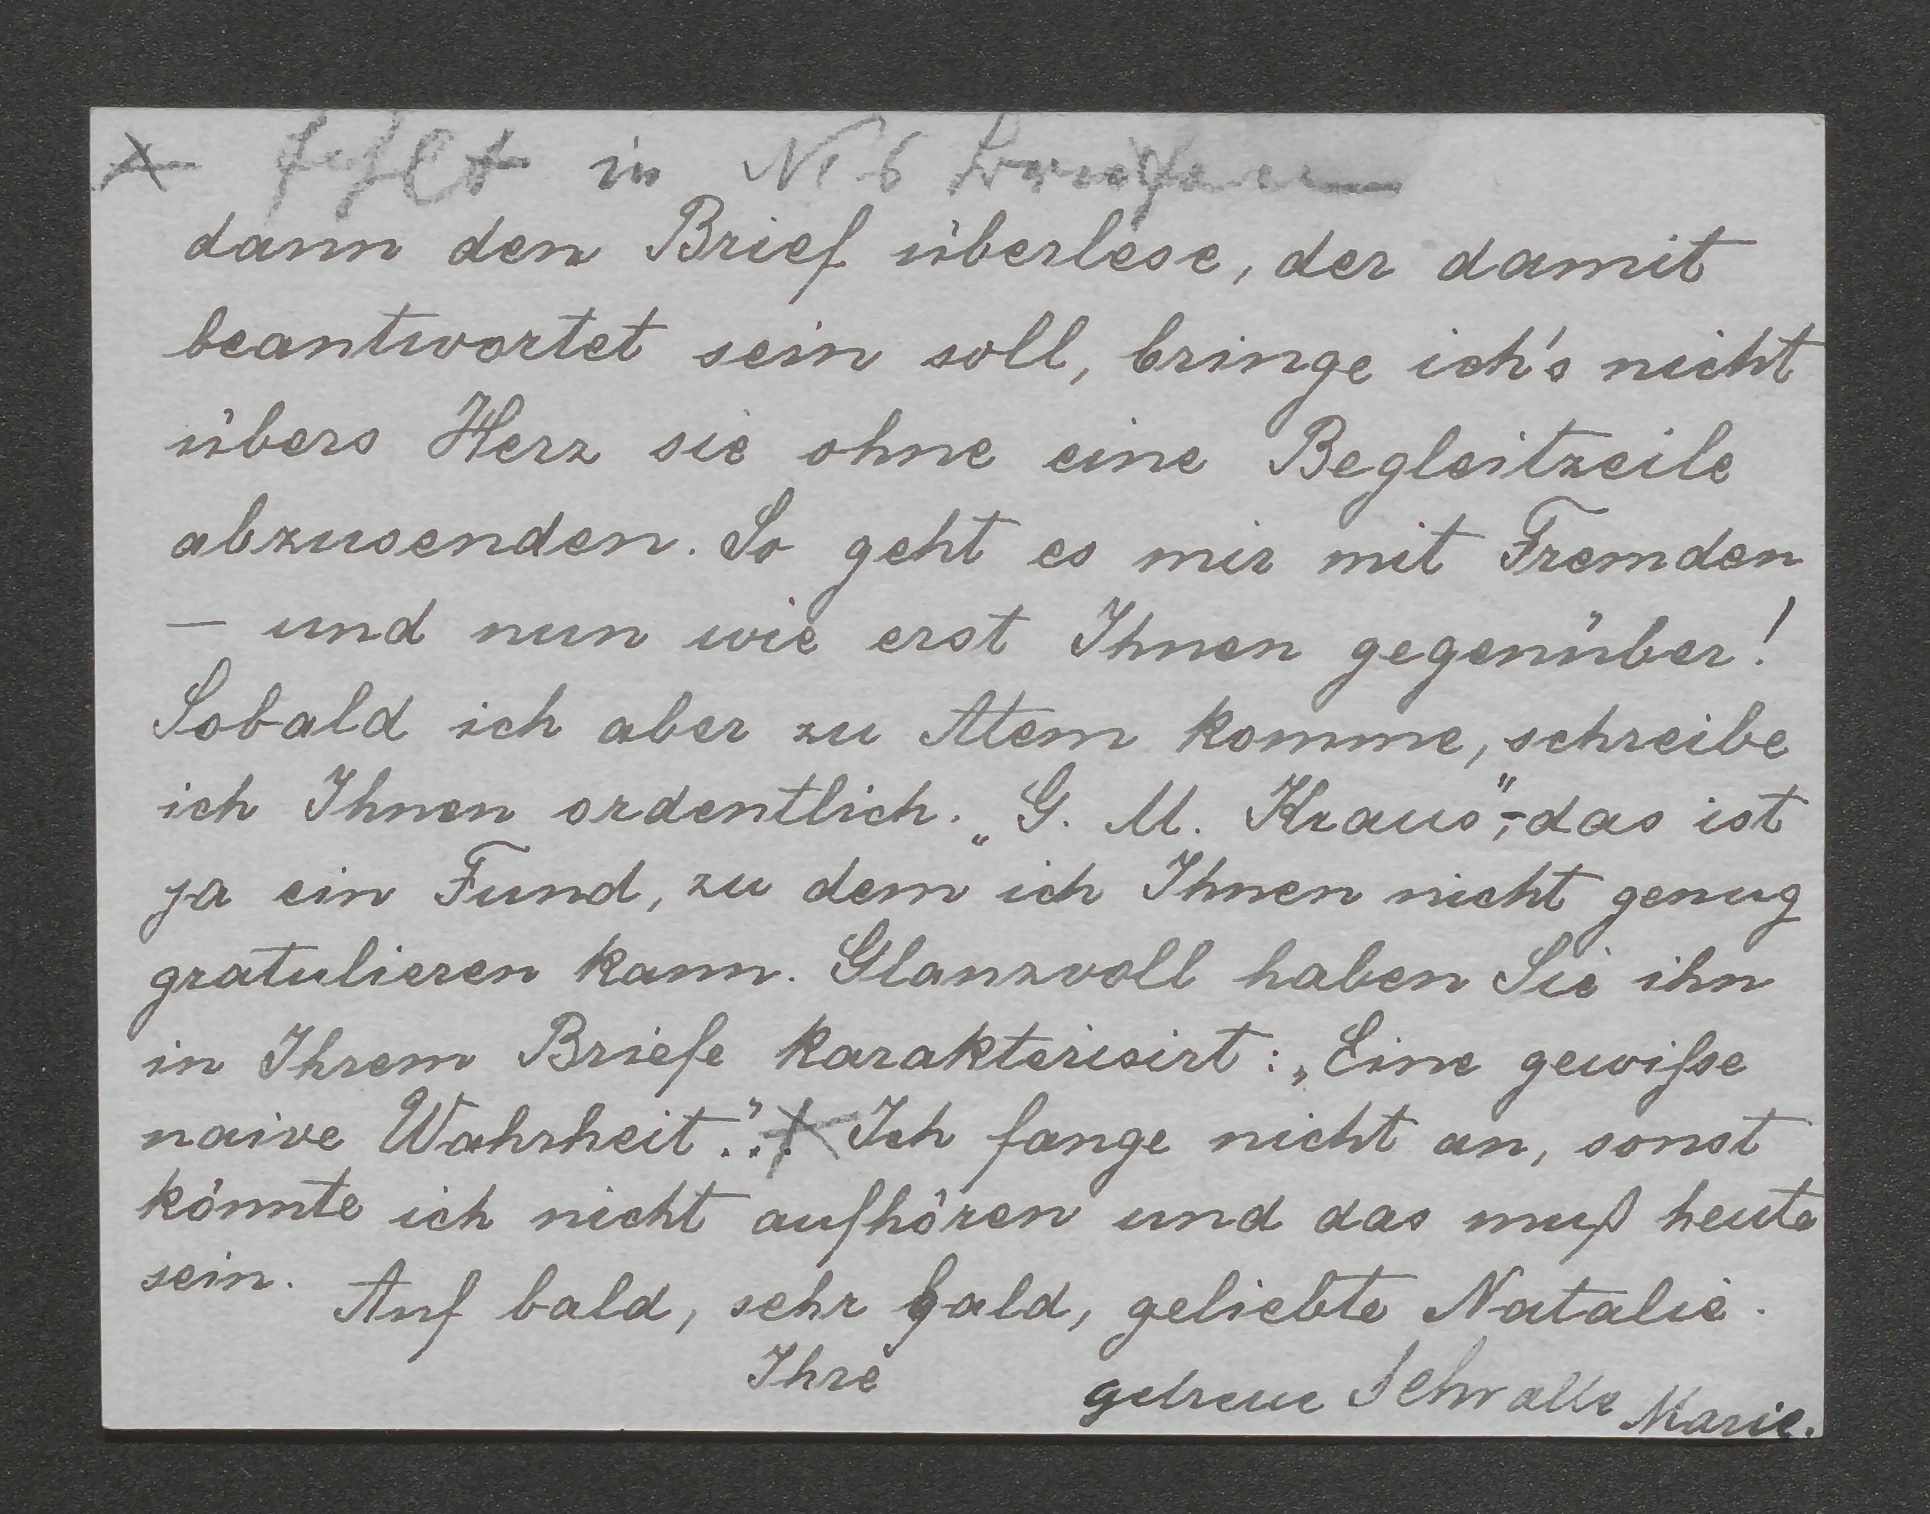 x fehlt in Nr 6
dann den Brief überlese, der damit
beantwortet sein soll, bringe ich's nicht
übers Herz sie ohne eine Begleitzeile
abzusenden. So geht es mir mit Fremden
– und nun wie erst Ihnen gegenüber!
Sobald ich aber zu Atem komme, schreibe
ich Ihnen ordentlich. „G. M. Kraus", – das ist
ja ein Fund, zu dem ich Ihnen nicht genug
gratulieren kann. Glanzvoll haben Sie ihn
in Ihrem Briefe karakterisirt: „Eine gewiſse
naive Wahrheit"... x Ich fange nicht an, sonst
könnte ich nicht aufhören und das muß heute
sein. Auf bald, sehr bald, geliebte Natalie.
Ihre
getreue Marie.